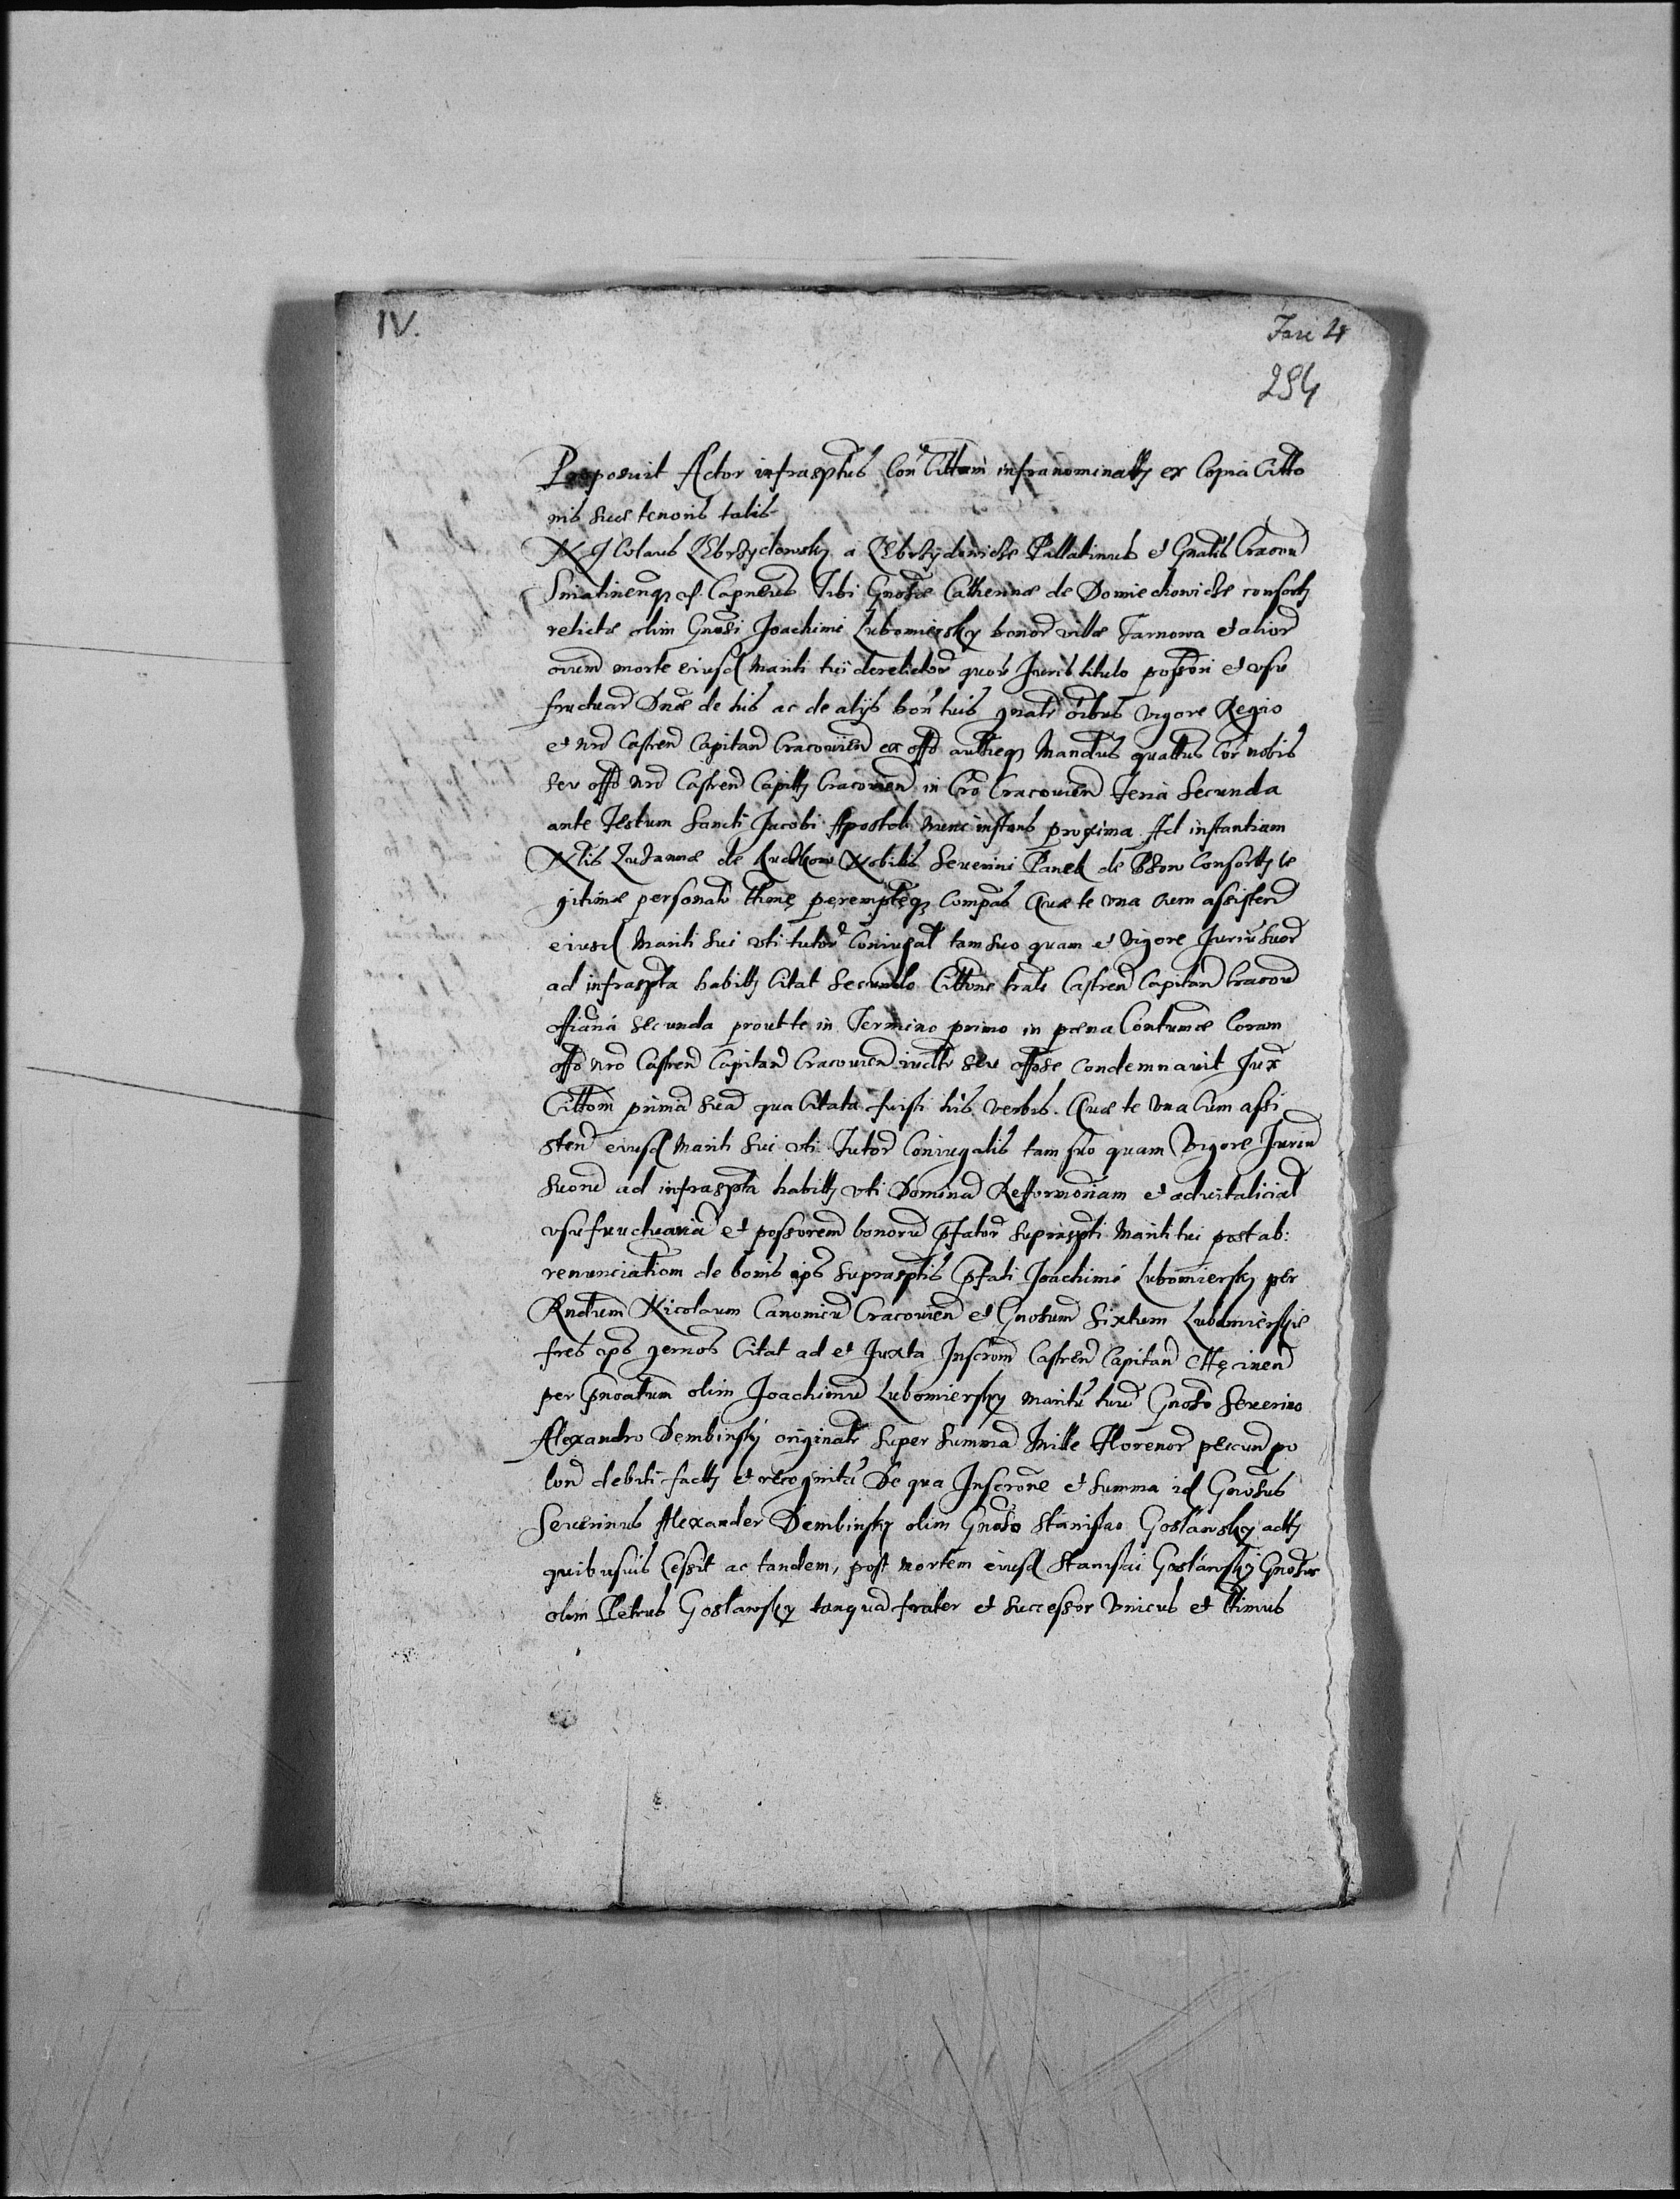 IV.
284
Proposuit Actor infrasptus Con Cittom infranominatt ex Copia Citto
nis suæ tenoris talis
Nicolaus Zebrzydowsky a Zebrzydowicze Pallatinus et Gnalis Cracou
Capneus Tibi Gnosæ Catherinæ de Domiechowicze consorti
relictæ olim Gnosi Joachimi Lubomiersky bonor villæ Tarnowa et alior
oium morte eiusd Mariti tui derelictor quouis Juris titulo possori et usu
fructuar Dnæ de his ac de alijs bon tuis gnalr oibus vigore Regio
et nro Castren Capitan Cracouien ex offo autheq Mandus quattus Cor nobis
seu offo nro Castren Capitt Cracouien in Cro Cracouien Feria Secunda
ante Festum Sancti Jacobi Apostoli nunc instans proxima Ad instantiam
Nlis Zuzannæ de Nobilis Seuerini Panek de Consortt le
gitimæ personalr thme peremptęq Compas Quæ te vna cum assisten
eiusd Mariti sui vti tutor Coniugal tam suo quam et vigore Juriu suor
ad infraspta habitt Citat secundo Cittone Castren Capitan Cracou
secunda prout te in Termino primo in pœna Contumæ Coram
offo nro Castren Capitan Cracouien seu offose condemnauit Jux
Cittom prima sua qua Citata fuisti his verbis. Quæ te vna Cum assi
sten eiusd Mariti sui vti Tutor Coniugalis tam suo quam Vigore Juriu
suoru ad infraspta habitt vti Domina Refformoriam et aduitalicial
vsufructuaria et possorem bonoru pfator suprasptı Mariti tui post ab:
renunciatiom de bonis ips suprasptis pfati Joachimi Lubomiersky per
Rndum Nicolaum Canonicu Cracouien et Gnosum Sixtum Lubomierskie
fres ips germos Citat ad et Juxta Inscrom Castren Capitan
per Gnoatum olim Joachimu Lubomiersky maritu tuu Gnoso Seuerino
Alexandro Dembinsky originalr super summa Mille Florenor pecun po
lon debiti factt et recognitu De qua Inscrone et summa id Gnosus
Seuerinus Alexander Dembinsky olim Gnoso Stanislao Gosławsky actt
quibusuis Cessit ac tandem, post mortem eiusd Stanislai Gosławsky Gnosus
olim Petrus Gosławsky tanqua frater et successor Vnicus et ltimus